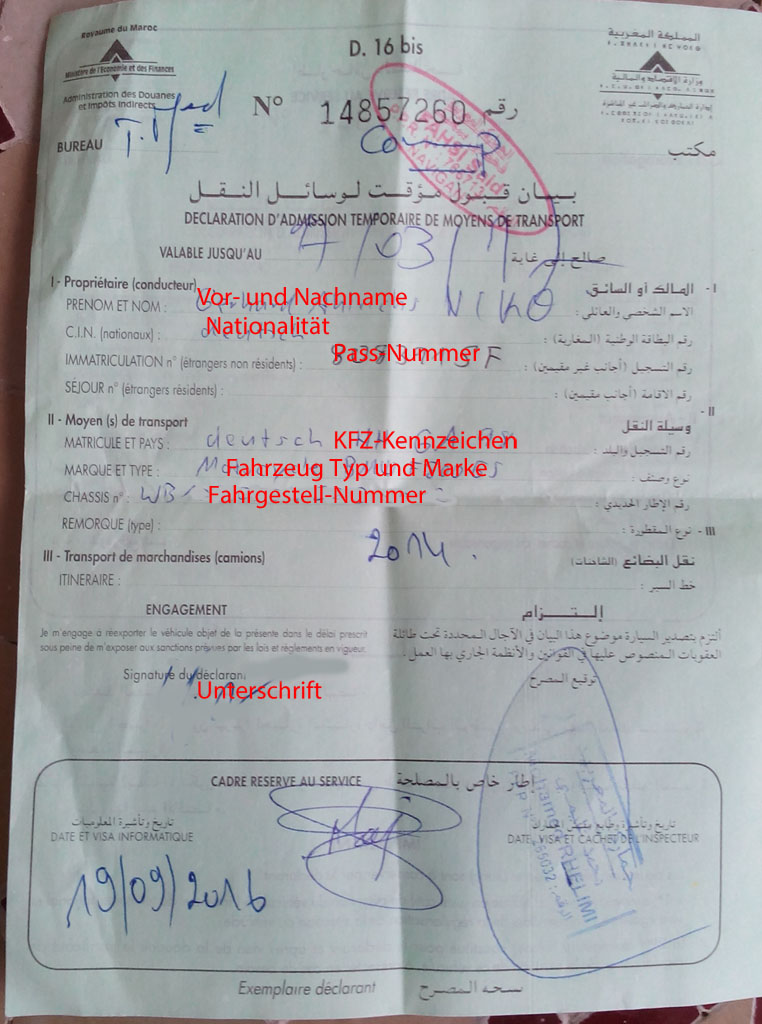 Royaume du Maroc
المملكة المغربية
D. 16 bis
Ministère de l'Economie et des Finances
وزارة الاقتصاد والمالية
Administration des Douanes
et Impôts Indirects
إدارة الجمارك والضرائب غير المباشرة
T. Med
N° 14857260 رقم
BUREAU
مكتب
بيان قبول مؤقت لوسائل النقل
DECLARATION D'ADMISSION TEMPORAIRE DE MOYENS DE TRANSPORT
VALABLE JUSQU'AU
صالح إلى غاية
I - Propriétaire (conducteur)
I - المالك أو السائق
Vor- und Nachname
PRENOM ET NOM : NIKO
الاسم الشخصي والعائلي :
Nationalität
C.I.N. (nationaux) :
رقم البطاقة الوطنية (المغاربة) :
Pass-Nummer
IMMATRICULATION n° (étrangers non résidents) :
رقم التسجيل (أجانب غير مقيمين) :
SÉJOUR n° (étrangers résidents) :
رقم الاقامة (أجانب مقيمين) :
II - Moyen (s) de transport
II - وسيلة النقل
MATRICULE ET PAYS : deutsch KFZ-Kennzeichen
رقم التسجيل والبلد :
MARQUE ET TYPE : Fahrzeug Typ und Marke
نوع وصنف :
CHASSIS n° : WB Fahrgestell-Nummer
رقم الإطار الحديدي :
REMORQUE (type) :
III - نوع المقطورة :
2014.
III - Transport de marchandises (camions)
نقل البضائع (الشاحنات)
ITINERAIRE :
خط السير :
ENGAGEMENT
إلتزام
Je m'engage à réexporter le véhicule objet de la présente dans le délai prescrit
sous peine de m'exposer aux sanctions prévues par les lois et règlements en vigueur.
ألتزم بتصدير السيارة موضوع هذا البيان في الآجال المحددة تحت طائلة
العقوبات المنصوص عليها في القوانين والأنظمة الجاري بها العمل.
Signature du déclarant
توقيع المصرح
Unterschrift
CADRE RESERVE AU SERVICE
إطار خاص بالمصلحة
تاريخ وتأشيرة المعلوميات
DATE ET VISA INFORMATIQUE
DATE, VISA ET CACHET DE L'INSPECTEUR
19/09/2016
Exemplaire déclarant
نسخة المصرح